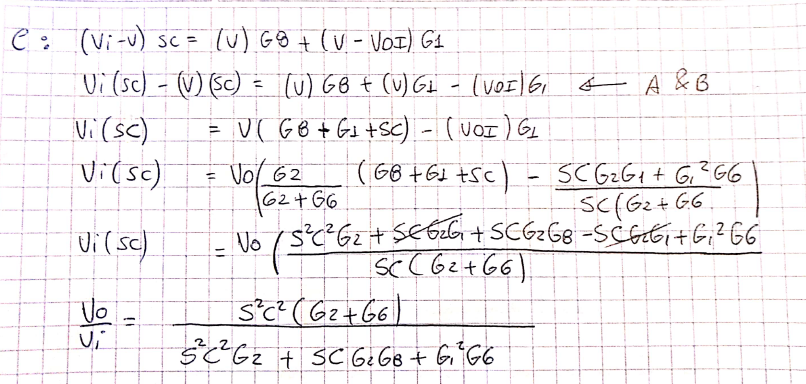 C: (Vi-v) sc = (v) G8 + (v - VOI) G1
Vi(sc) - (v)(sc) = (v) G8 + (v)G1 - (VOI)G1 ← A & B
Vi(sc) = v( G8 + G1 + sc) - (VOI) G1
Vi(sc) = Vo( G2 / G2 + G6 (G8 + G1 + sc) - SCG2G1 + G1²G6 / SC(G2 + G6 )
Vi(sc) = Vo ( S²C²G2 + SCG2G1 + SCG2G8 - SCG2G1 + G1²G6 / SC(G2 + G6)
Vo/Vi = S²C²(G2+G6) / S²C²G2 + SCG2G8 + G1²G6